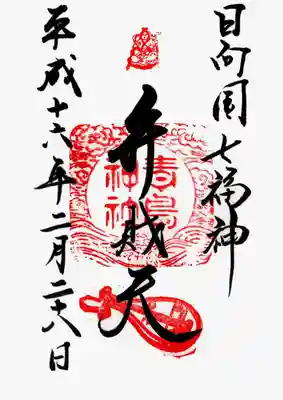 日向国七福神
弁財天
青島
平成十六年二月二十八日